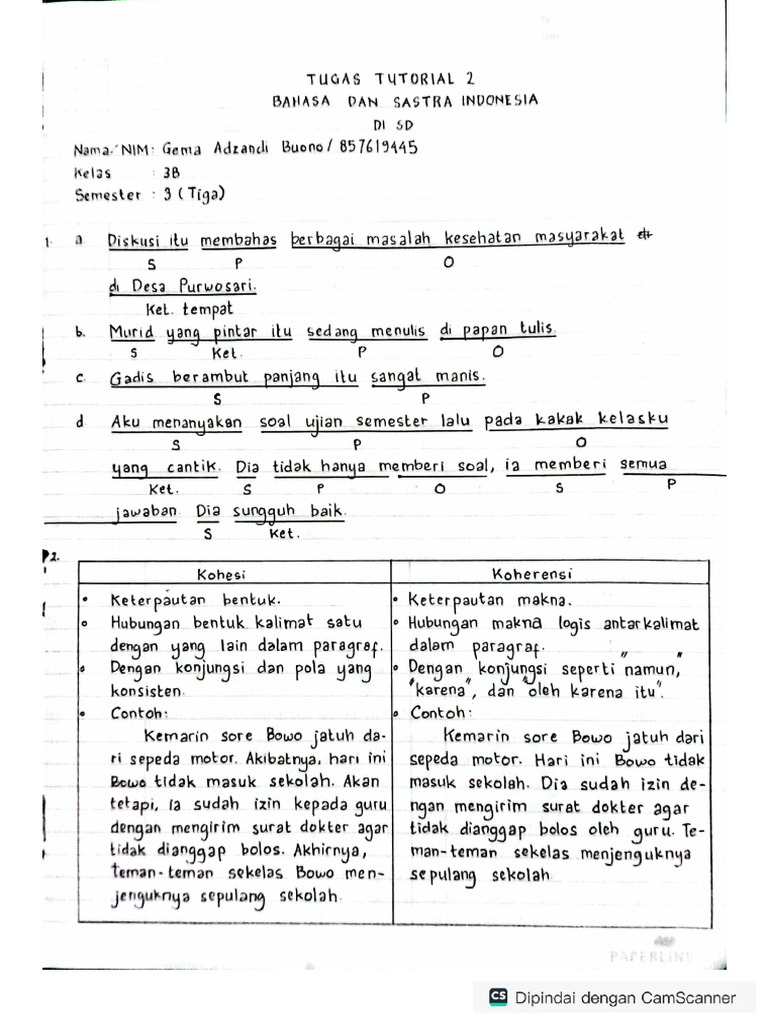 TUGAS TUTORIAL 2
BAHASA DAN SASTRA INDONESIA
DI SD
Nama/NIM: Gema Adzandi Buono/857619445
Kelas : 3B
Semester : 3 (Tiga)
1. a. Diskusi itu membahas berbagai masalah kesehatan masyarakat
S P O
di Desa Purwosari.
Ket. tempat
b. Murid yang pintar itu sedang menulis di papan tulis.
S Ket. P O
c. Gadis berambut panjang itu sangat manis.
S P
d. Aku menanyakan soal ujian semester lalu pada kakak kelasku
S P O
yang cantik. Dia tidak hanya memberi soal, ia memberi semua
Ket. S P O S P
jawaban. Dia sungguh baik.
S Ket.
2.
Kohesi
• Keterpautan bentuk.
• Hubungan bentuk kalimat satu
dengan yang lain dalam paragraf.
• Dengan konjungsi dan pola yang
konsisten.
• Contoh:
Kemarin sore Bowo jatuh da-
ri sepeda motor. Akibatnya, hari ini
Bowo tidak masuk sekolah. Akan
tetapi, ia sudah izin kepada guru
dengan mengirim surat dokter agar
tidak dianggap bolos. Akhirnya,
teman-teman sekelas Bowo men-
jenguknya sepulang sekolah.
Koherensi
• Keterpautan makna.
• Hubungan makna logis antarkalimat
dalam paragraf.
• Dengan konjungsi seperti "namun,"
"karena", dan "oleh karena itu".
• Contoh:
Kemarin sore Bowo jatuh dari
sepeda motor. Hari ini Bowo tidak
masuk sekolah. Dia sudah izin de-
ngan mengirim surat dokter agar
tidak dianggap bolos oleh guru. Te-
man-teman sekelas menjenguknya
sepulang sekolah.
PAPERLINE
CS Dipindai dengan CamScanner